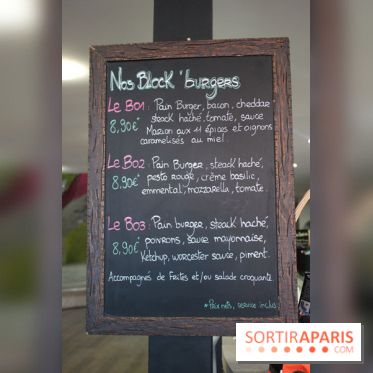 Nos BLOCK'burgers
Le BO1 : Pain Burger, bacon, cheddar
steack haché, tomate, sauce
8,90€*
Maison aux 11 épices et oignons
caramélisés au miel.
Le BO2 : Pain Burger, steack haché,
8,90€* pesto rouge, crème basilic,
emmental, mozzarella, tomate
Le BO3 : Pain burger, steack haché,
8,90€* poivrons, sauce mayonnaise,
Ketchup, worcester sauce, piment.
Accompagnés de Frites et/ou salade croquante.
*Prix nets, service inclus.
SORTIRAPARIS
.COM